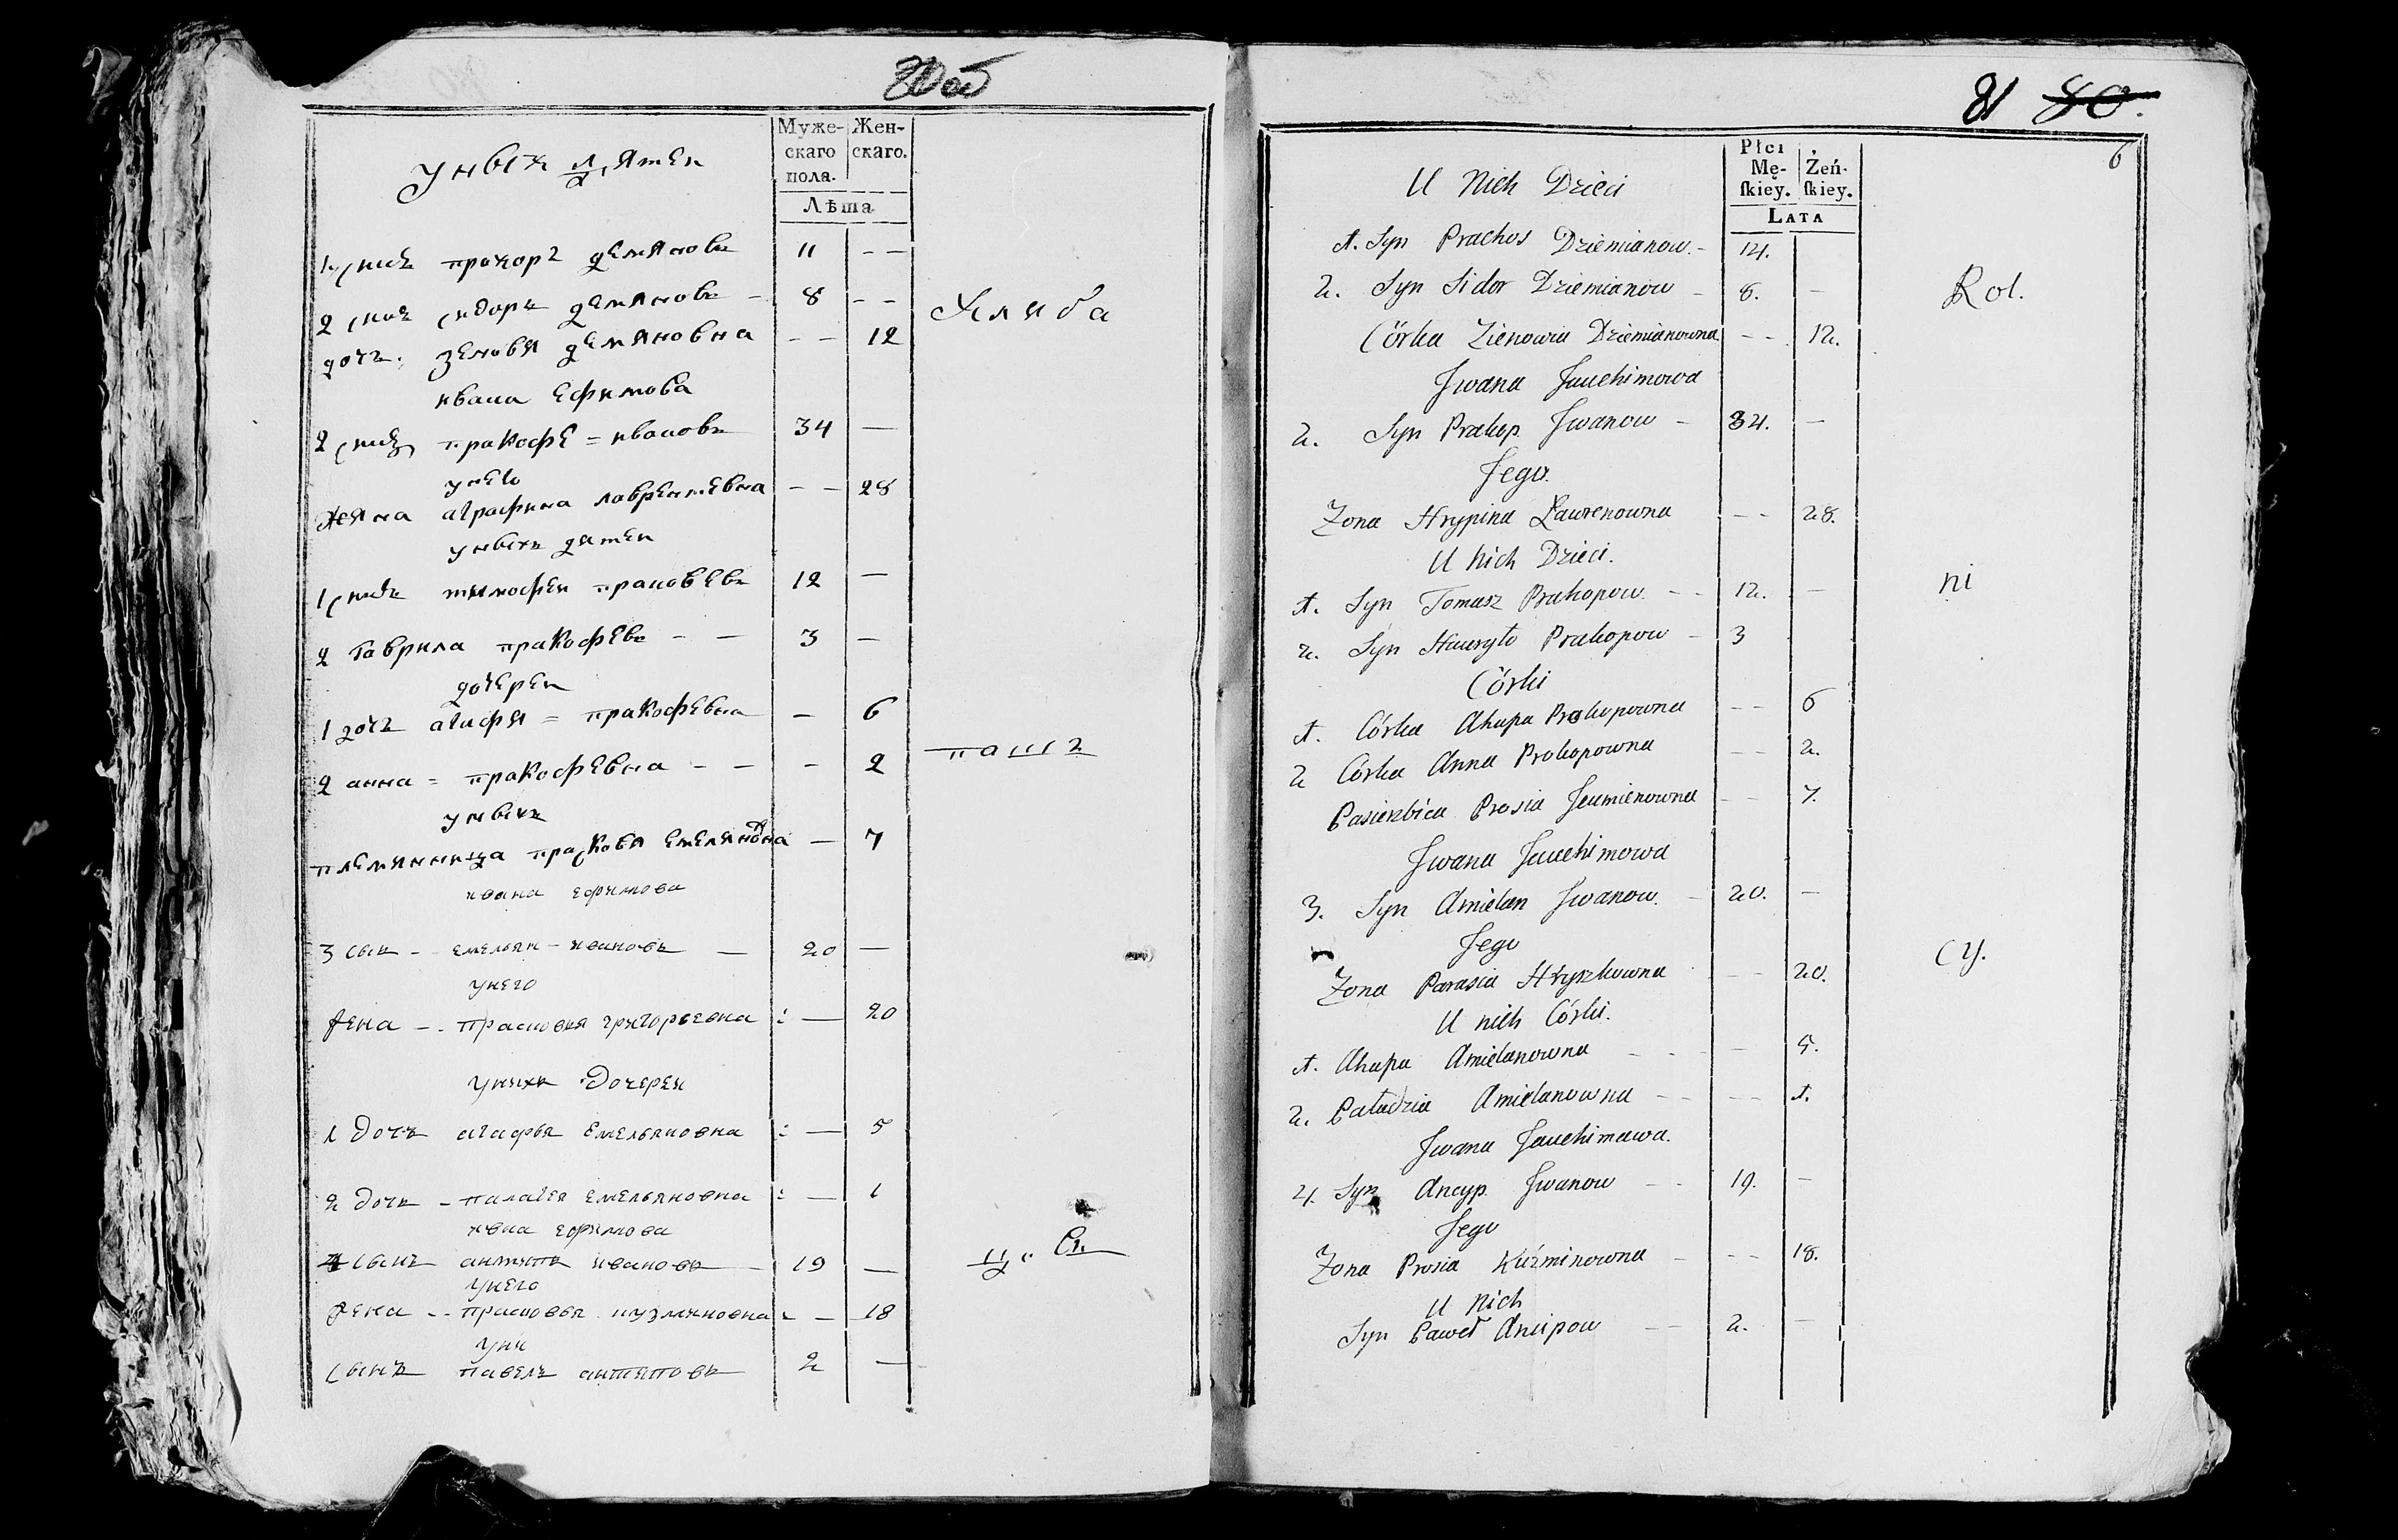 80 об
Муже-
скаго
пола.
Жен-
скаго.
Лѣта
у нвых дятеи
1 сынъ прохоръ демяновъ 11 - -
2 сынъ сидоръ демяновъ - 8 - -
дочъ: зеновя демяновна - - 12
Хляба
ивана ефимова
2 сынъ пракофе = ивановъ 34 -
унего
жена аграфина лаврентевна - - 28
унвыхъ дятеи
1 сынъ тимофеи 12 -
2 гаврила пракофевъ - - 3 -
дочереи
1 дочъ агафя = пракофевна - 6
2 анна = пракофевна - - - 2
паш
унвыхъ
племянница прасковя емеляновна - 7
ивана ефимова
3 сынъ - емельян - ивановъ - 20 -
унего
жена - - прасковья григорьевна : - 20
унихъ дочереи
1 дочъ агафья емельяновна : - 5
2 дочъ - палагея емельяновна : - 1
ивана ефимова
4 сынъ антипъ ивановъ 19 -
унего
жена - - прасковья кузминовна - 18
уни
сынъ павелъ антиповъ 2 -
81 80.
6
Płci
Mę-
ſkiey.
Żeń-
ſkiey.
LATA
U Nich Dzieci
1. Syn Prachor Dziemianow. - 14.
2. Syn Sidor Dziemianow - 8. -
Rol.
Córka Zienowia Dziemianowna - - 12.
Jwana Jauchimowa
2. Syn Prakop Jwanow - 34. -
Jego.
Zona Hrypina Ławrenowna - - 28.
U Nich Dzieci.
1. Syn Tomasz Prakopow. - - 12. -
ni
2. Syn Hawryło Prakopow - 3
Córki
1. Córka Ahapa Prakopowna - - 6
2 Córka Anna Prokopowna - - 2.
Pasierbica Prosia Jeumienowna - - 7.
Jwana Jauchimowa
3. Syn Amielan Jwanow. - 20. -
Jego
Zona Parasia Hryszkowna - - 20.
cy.
U nich Córki.
1. Ahapa Amielanowna - - - 5.
2. Paładzia Amielanowna - - - - 1.
Jwana Jauchimawa.
4. Syn Ancyp. Jwanow - - 19. -
Jego
Zona Prosia Kuźminowna - - - 18.
U Nich
Syn Paweł Ancipow - - 2. -